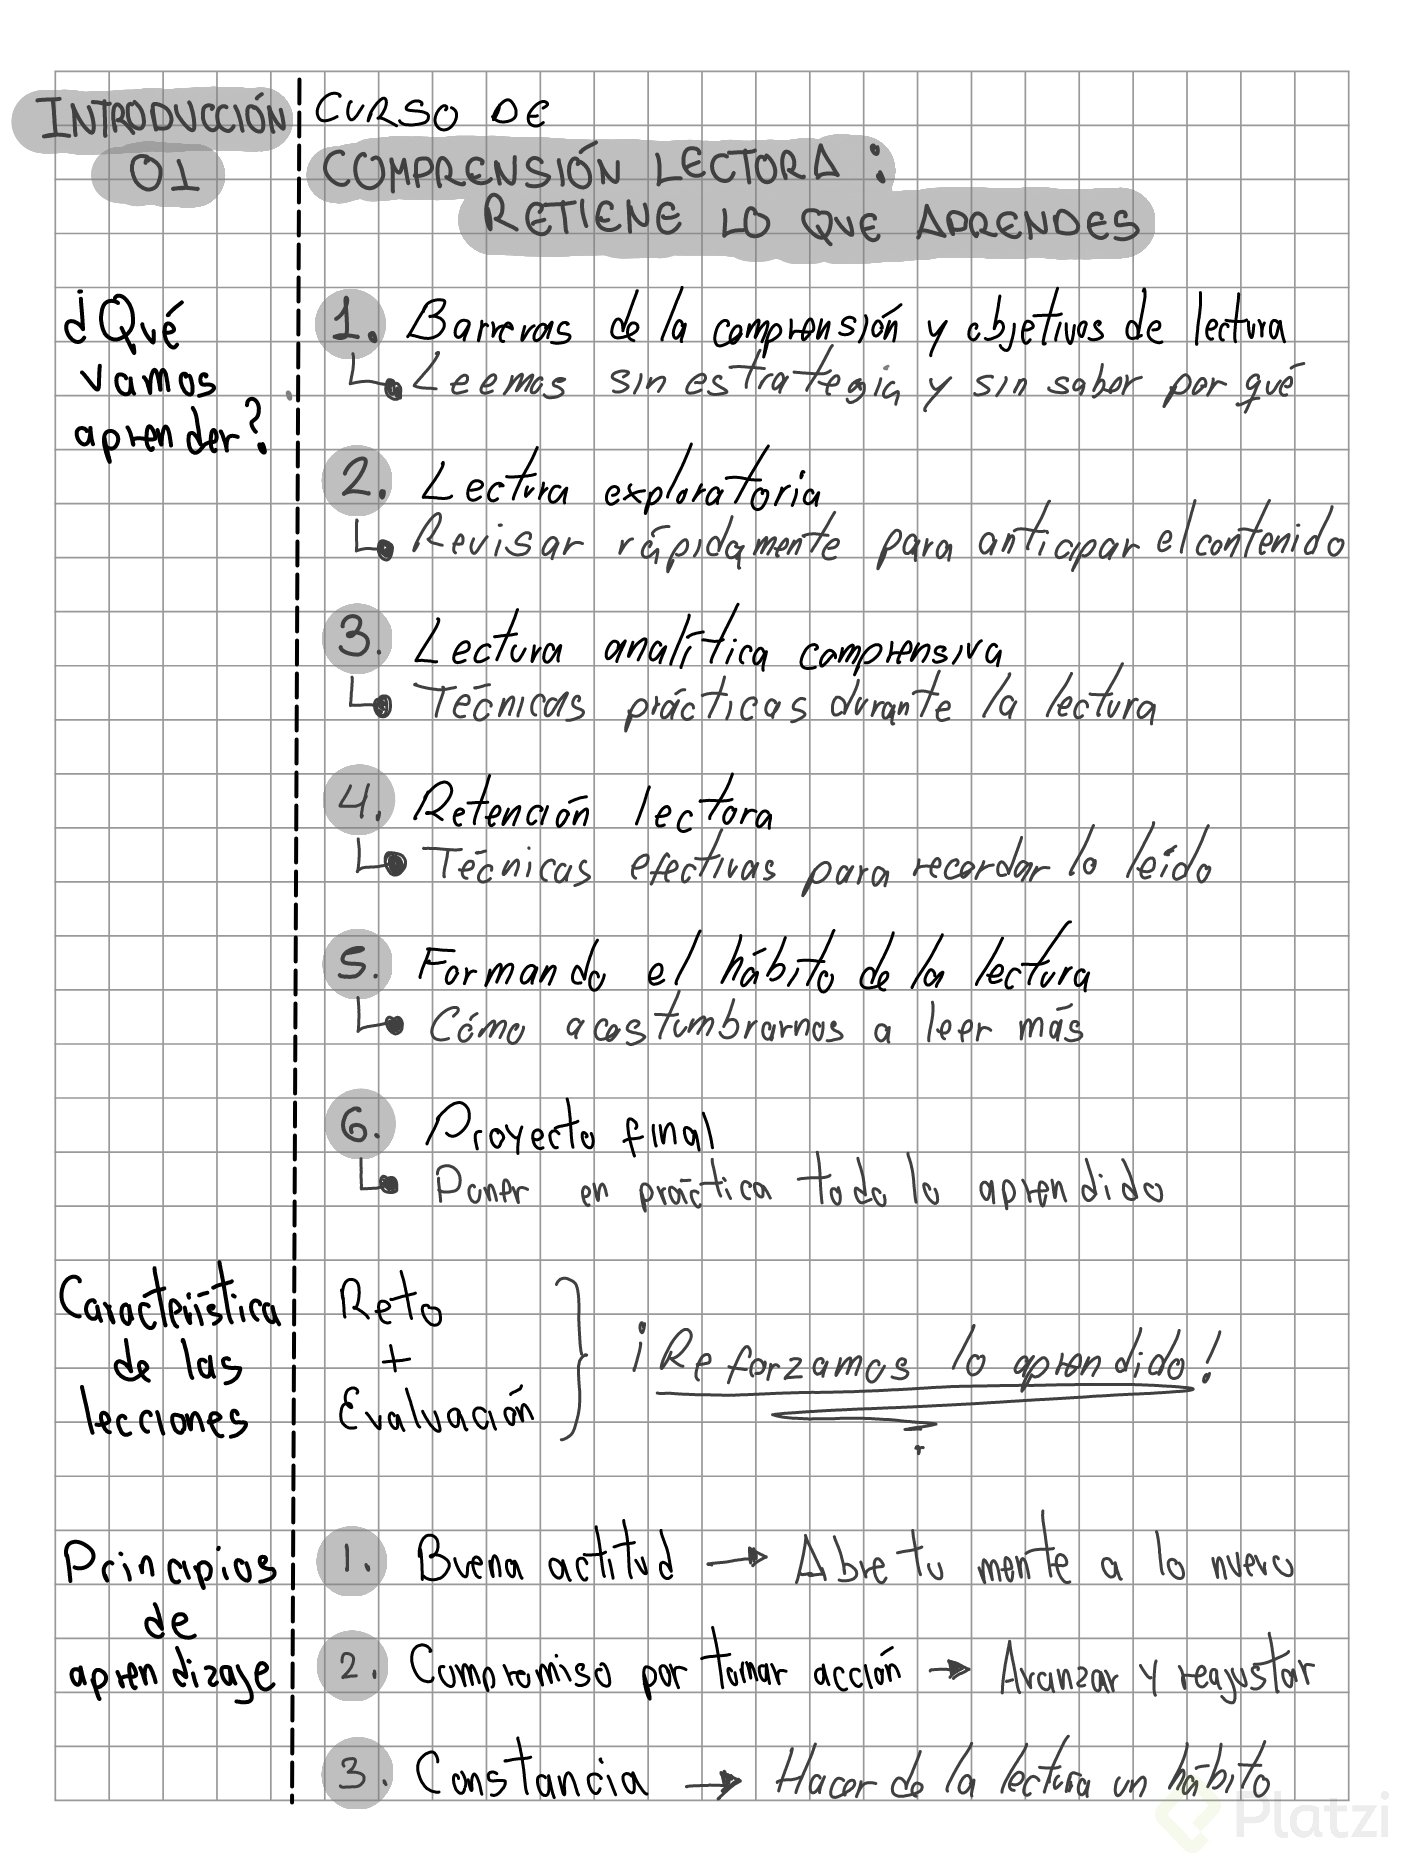 INTRODUCCIÓN
01
CURSO DE
COMPRENSIÓN LECTORA:
RETIENE LO QUE APRENDES
¿Qué
vamos
aprender?
1. Barreras de la comprensión y objetivos de lectura
Leemos sin estrategia y sin saber por qué
2. Lectura exploratoria
Revisar rápidamente para anticipar el contenido
3. Lectura analítica comprensiva
Técnicas prácticas durante la lectura
4. Retención lectora
Técnicas efectivas para recordar lo leído
5. Formando el hábito de la lectura
Cómo acostumbrarnos a leer más
6. Proyecto final
Poner en práctica todo lo aprendido
Característica
de las
lecciones
Reto
+
Evaluación
¡Reforzamos lo aprendido!
Principios
de
aprendizaje
1. Buena actitud → Abre tu mente a lo nuevo
2. Compromiso por tomar acción → Avanzar y reajustar
3. Constancia → Hacer de la lectura un hábito
Platzi